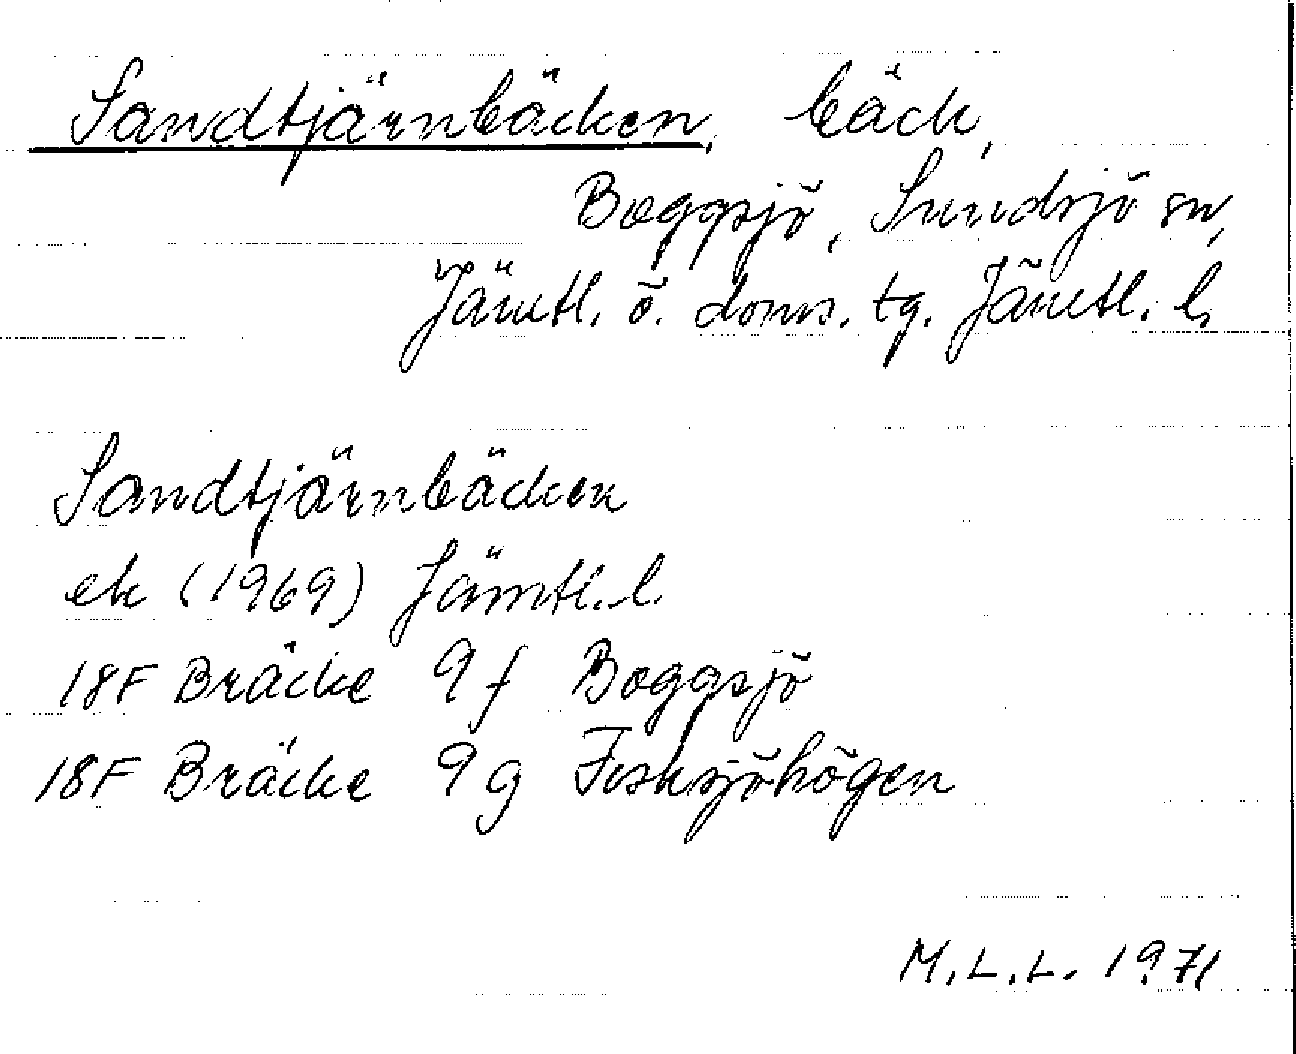 Sandtjärnbäcken, bäck,
Boggsjö, Sundsjö sn,
Jämtl. ö. doms. tg. Jämtl. l.
Sandtjärnbäcken
ek (1969) Jämtl. l.
18F Bräcke 9 f Boggsjö
18F Bräcke 9 g Fisksjöhögen
M.L.L. 1971